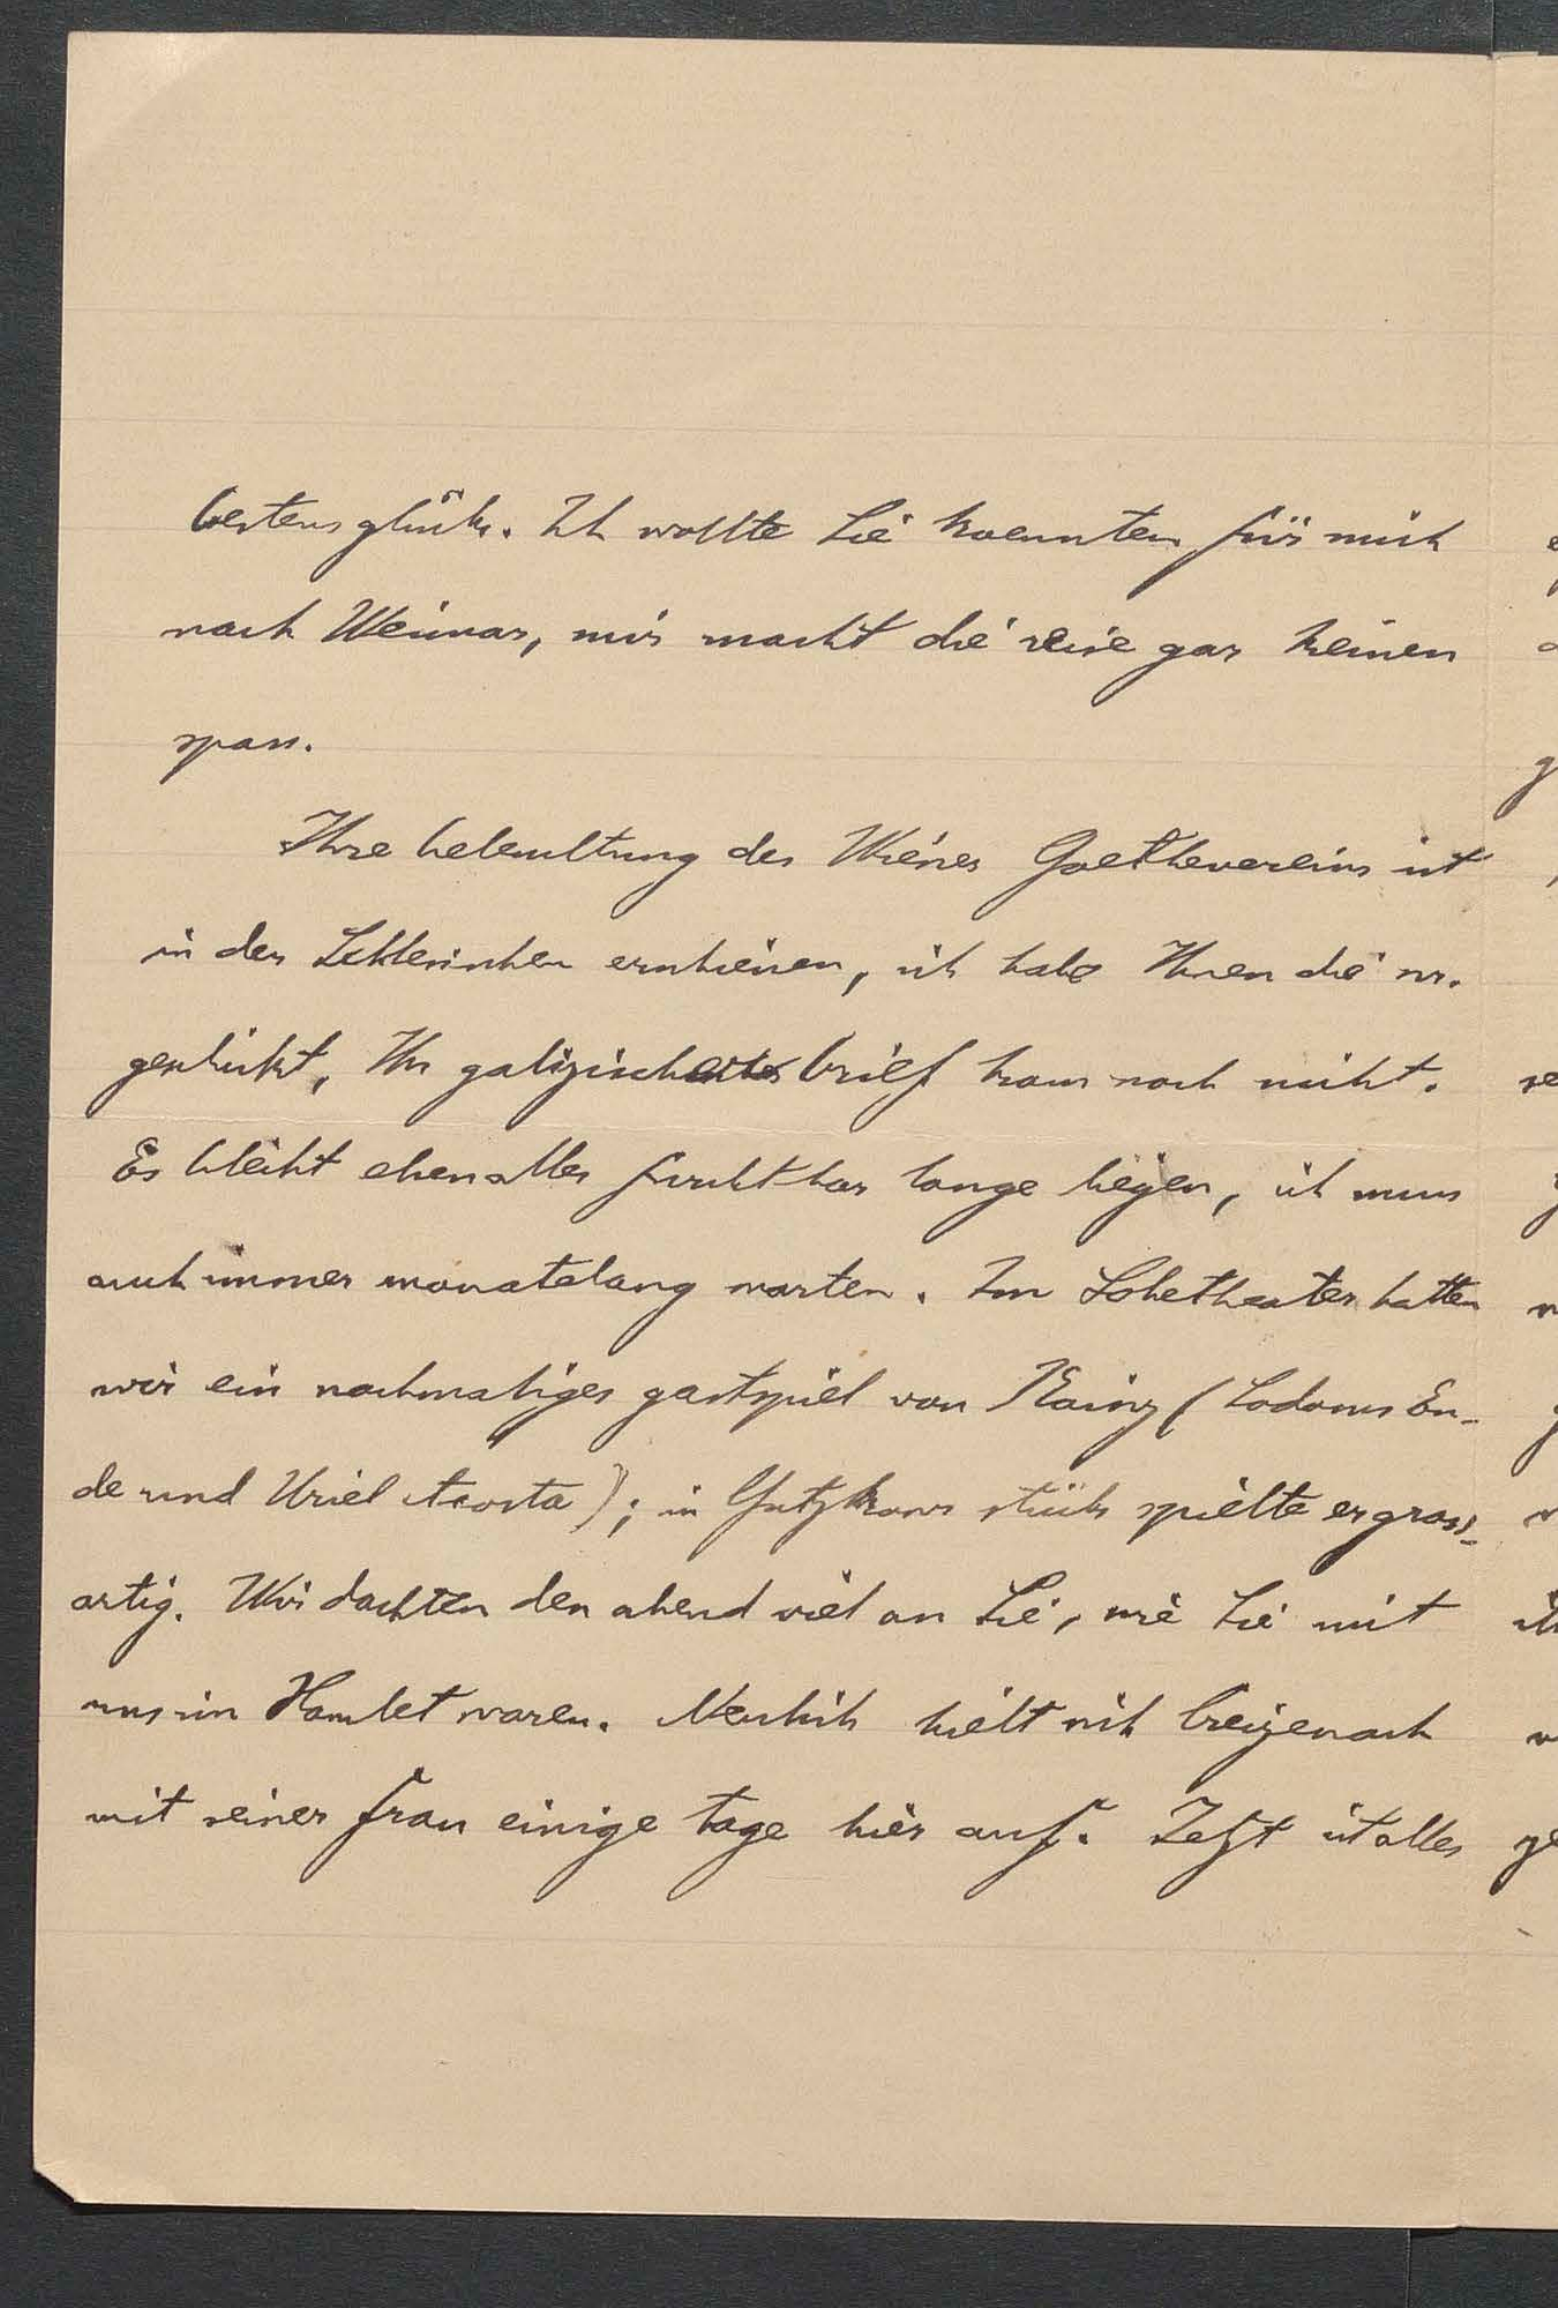 bestens glück. Ich wollte Sie koennten für mich
nach Weimar, mir macht die reise gar keinen
spass.
Ihre beleuchtung des Wiener Goethevereins ist
in der Schlesischen erschienen, ich habe Ihnen die nr.
geschickt, Ihr galizischer brief kam noch nicht.
Es bleibt eben alles furchtbar lange liegen, ich muss
auch immer monatelang warten. Im Lobetheater hatten
wir ein nochmaliges gastspiel von Kainz (Sodoms En-
de und Uriel Acosta); in Gutzkows stück spielte er gross-
artig. Wir dachten den abend viel an Sie, wie Sie mit
uns in Hamlet waren. Neulich hielt sich Creizenach
mit seiner frau einige tage hier auf. Jetzt ist alles